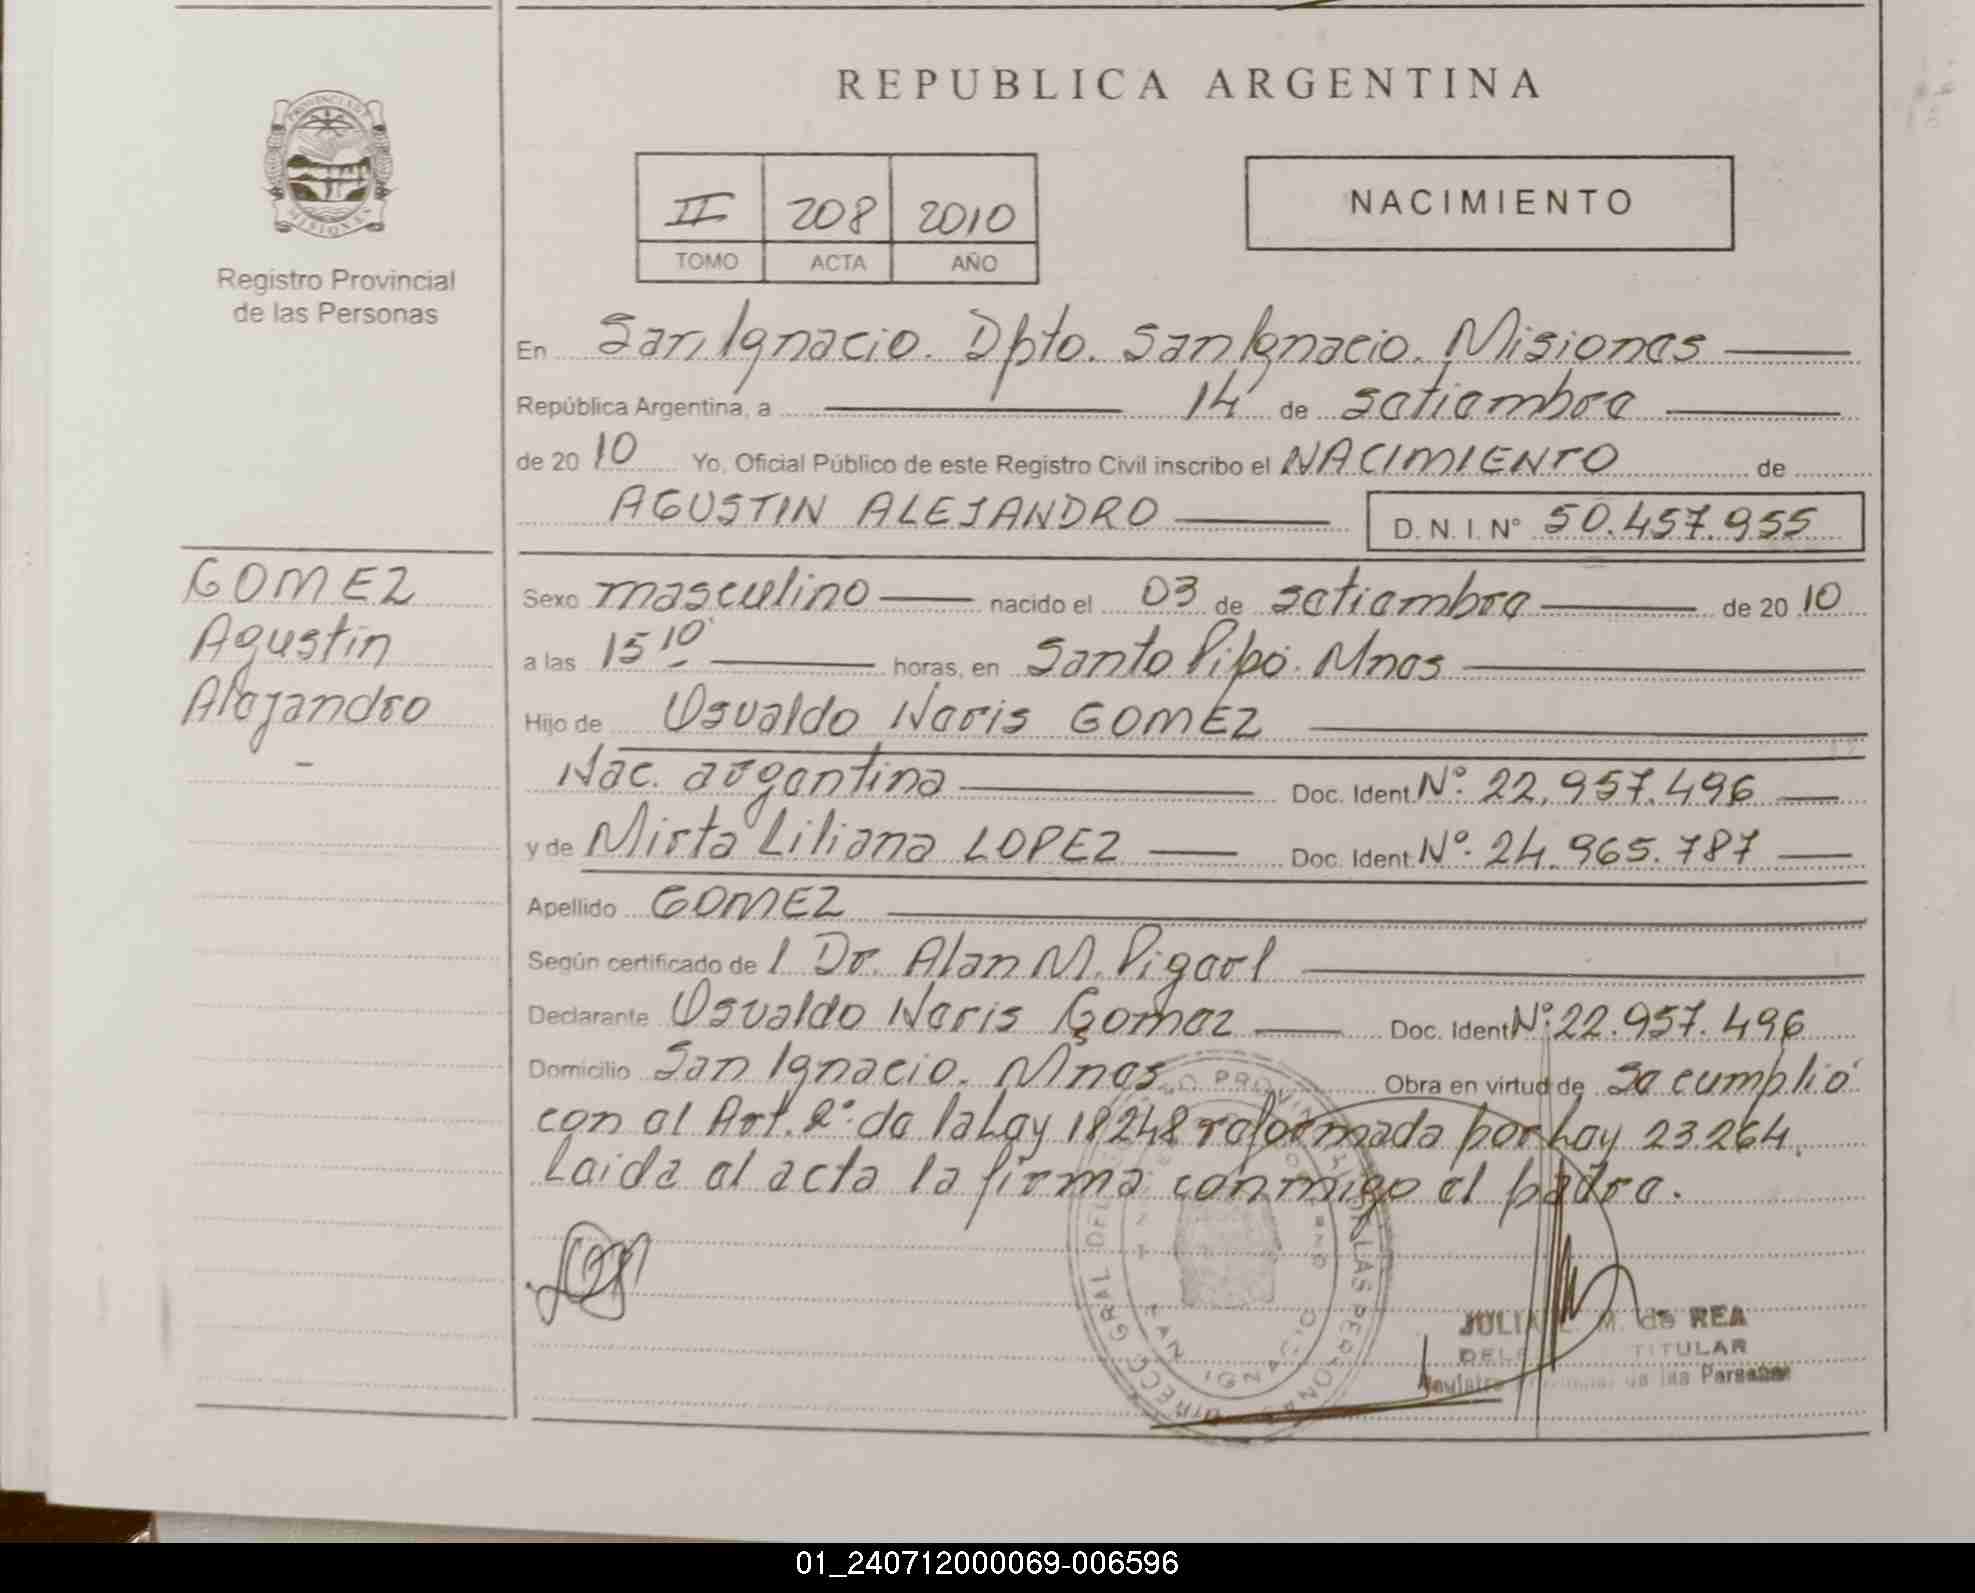 REPUBLICA ARGENTINA
PROVINCIA DE MISIONES
Registro Provincial
de las Personas
II 208 2010
TOMO ACTA AÑO
NACIMIENTO
En San Ignacio. Dpto. San Ignacio. Misiones
República Argentina, a 14 de setiembre
de 20 10 Yo, Oficial Público de este Registro Civil inscribo el NACIMIENTO de
AGUSTIN ALEJANDRO D. N. I. N° 50.457.955
GOMEZ
Agustin
Alejandro
Sexo masculino nacido el 03 de setiembre de 20 10
a las 15 10 horas, en Santo Pipó. Mnes
Hijo de Osvaldo Neris GOMEZ
Nac. argentina Doc. Ident. N°: 22.957.496
y de Mirta Liliana LOPEZ Doc. Ident. N°: 24.965.787
Apellido GOMEZ
Según certificado de l Dr. Alan M. Pigerl
Declarante Osvaldo Neris Gomez Doc. Ident N°: 22.957.496
Domicilio San Ignacio. Mnes Obra en virtud de Se cumplió
con el Art. 2°: de la Ley 18248 reformada por Ley 23.264.
Leida el acta la firma conmigo el padre.
DIRECC GRAL DEL LAS PERSONAS
SAN IGNACIO
JULIA M. de REA
TITULAR
Registro de las Personas
01_240712000069-006596